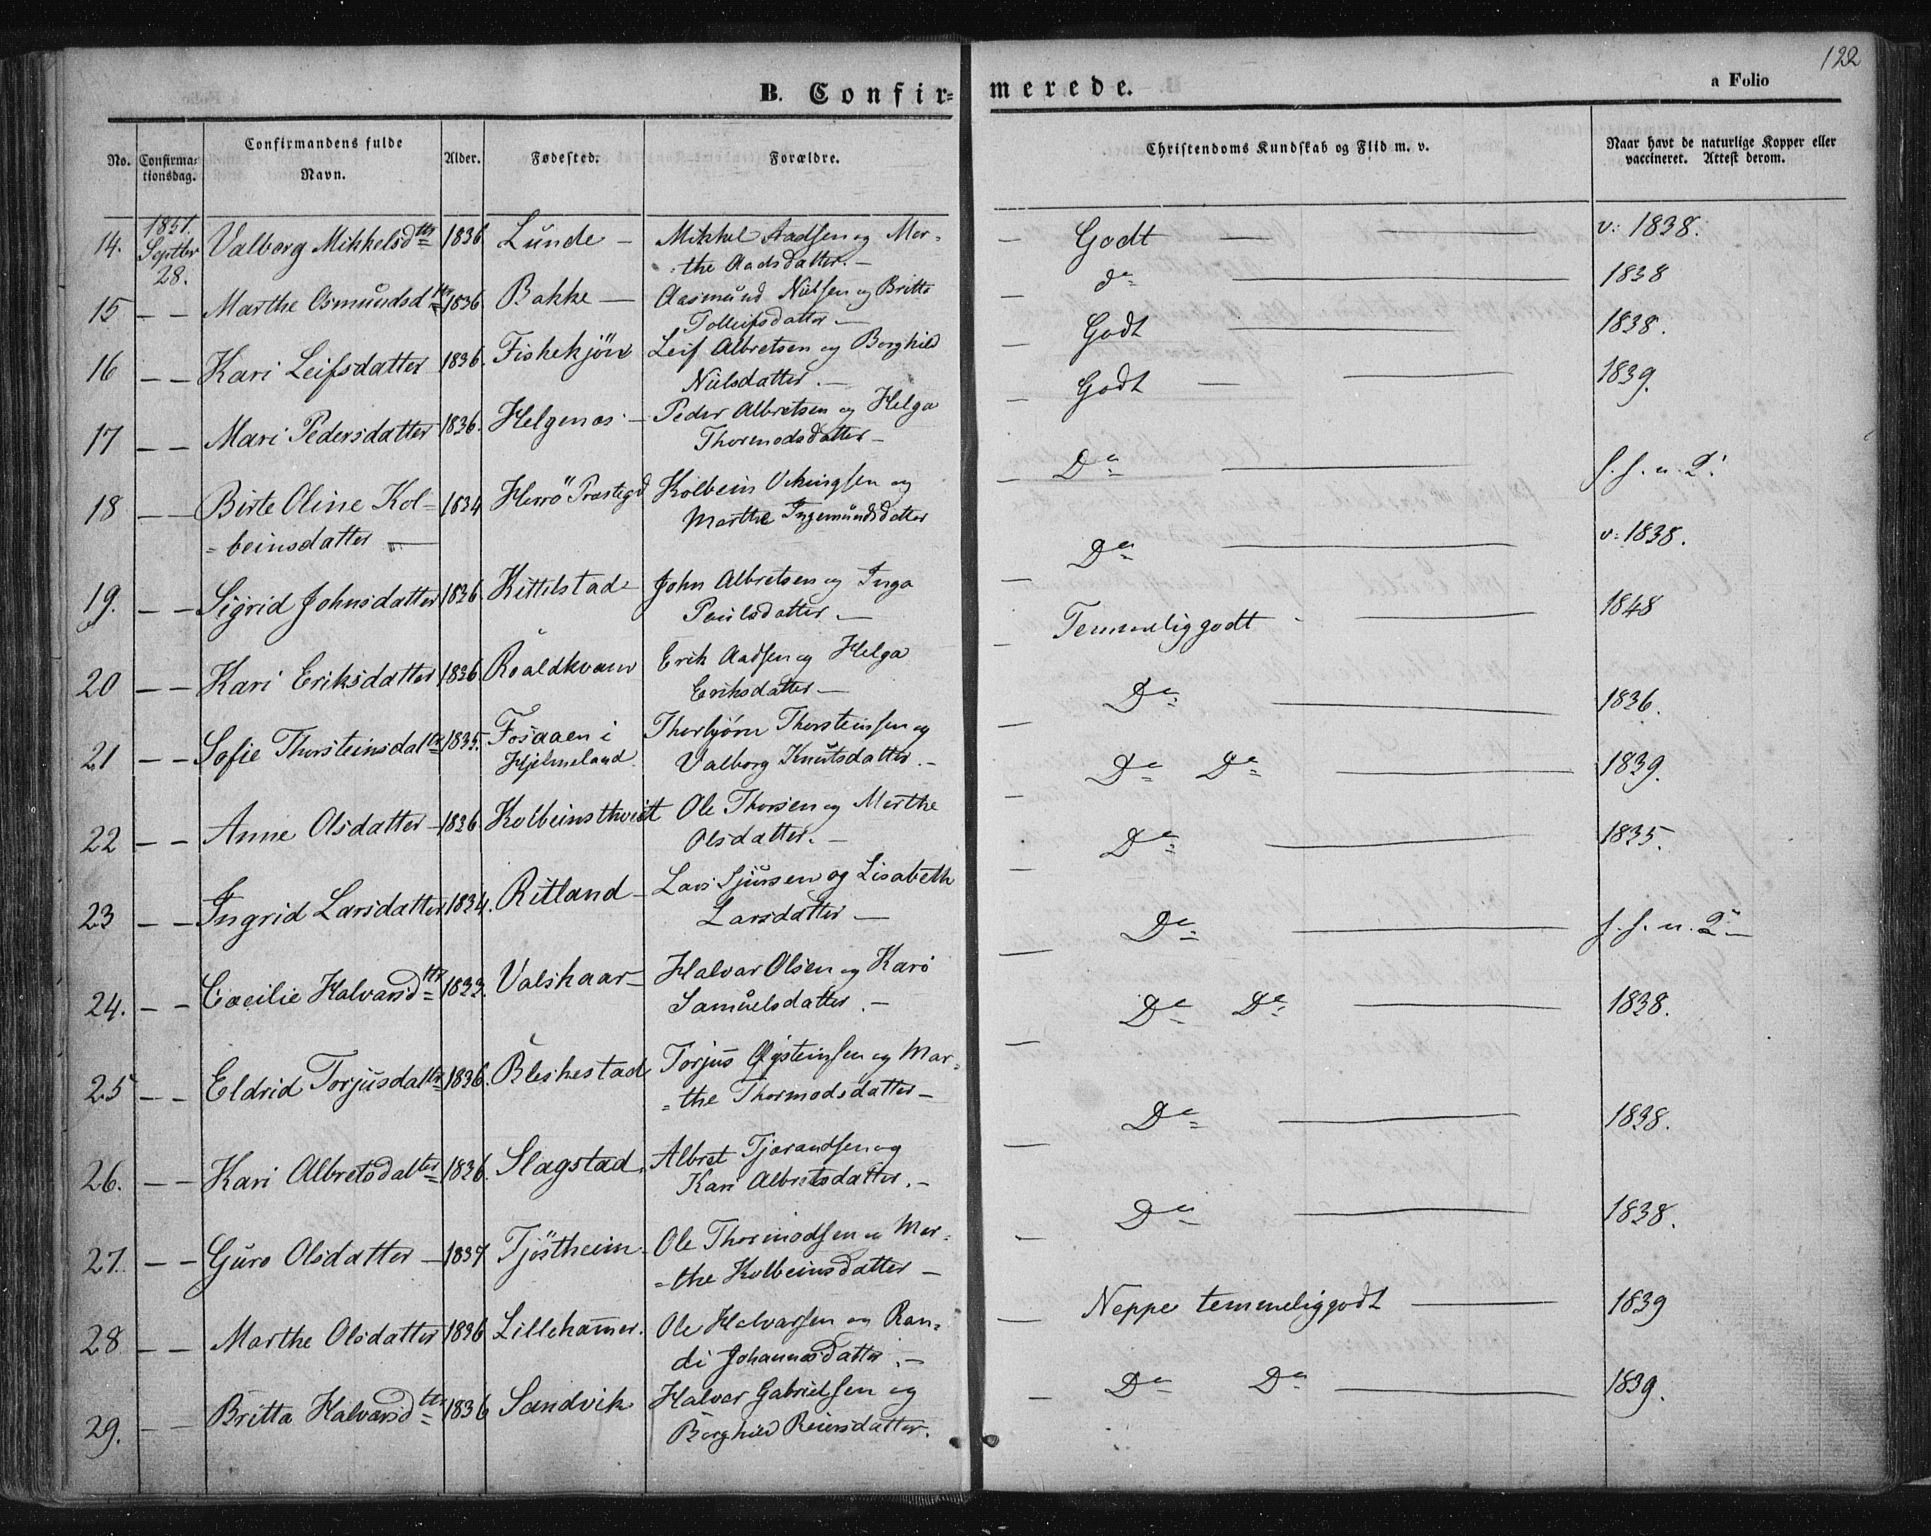 122
B. Confir= merede.
a Folio
No.
Confirma=
tionsdag.
Confirmandens fulde
Navn.
Alder.
Fødested.
Forældre.
Christendoms Kundskab og Flid m. v.
Naar havt de naturlige Kopper eller
vaccineret. Attest derom.
14. 1851. Septbr 28. Valborg Mikkelsdtr 1836. Lunde — Mikkel Aadsen og Mar=
the Aadsdatter. — Godt — v: 1838.
15 — — Marthe Osmundsdtr 1836. Bakke — Aasmund Nielsen og Britta
Tolleifsdatter — do 1838
16 — — Kari Leifsdatter 1836. Fiskekjön Leif Albretsen og Borghild
Nielsdatter. — Godt 1838.
17 — — Mari Pedersdatter 1836. Helgenes — Peder Albretsen og Helga
Thormodsdatter — Godt — 1839.
18 — — Birte Oline Kol= 1834 Herrö Præstegd Kolbein Vikingsen og
=beinsdatter — Marthe Ingemundsdatter Do f. f. u.
19. — — Sigrid Johnsdatter 1836. Kittelstad — John Albretsen og Inga
Poulsdatter — Do v: 1838.
20 — — Kari Eriksdatter 1836 Roaldkvam Erik Aadsen og Helga
Eriksdatter — Temmelig godt 1848
21 — — Sofie Thorsteinsdattr 1835. Fosaaen i Thorbjørn Thorsteinsen og
Hjelmeland. Valborg Knutsdatter. — Do 1836.
22 — — Anne Olsdatter — 1836. Kolbeinsthveit Ole Thorsen og Marthe
Olsdatter. — Do Do 1839.
23 — — Ingrid Larsdatter 1834. Ritland — Lars Sjursen og Lisabeth
Larsdatter — Do 1835.
24. — — Cecilie Halvarsdtr 1833. Valskaar — Halvar Olsen og Kari
Samuelsdatter. — Do f. f. u.
25 — — Eldrid Torjusdattr 1836. Bleskestad Torjus Øysteinsen og Mar=
=the Thormodsdatter — Do Do 1838.
26. — — Kari Albretsdatter 1836. Slagstad. Albret Tjerandsen og
Kari Albretsdatter. — Do 1838.
27. — — Guro Olsdatter — 1837 Tjöstheim — Ole Thormodsen og Mar=
=the Kolbeinsdatter — Do 1838.
28 — — Marthe Olsdatter 1836 Lillehamer. Ole Halvarsen og Ran=
di Johannesdatter. — Neppe temmelig godt — 1839
29. — — Britta Halvarsdtr 1836 Sandvik Halvar Gabrielsen og
Borghild Reiersdatter. Do Do 1839.